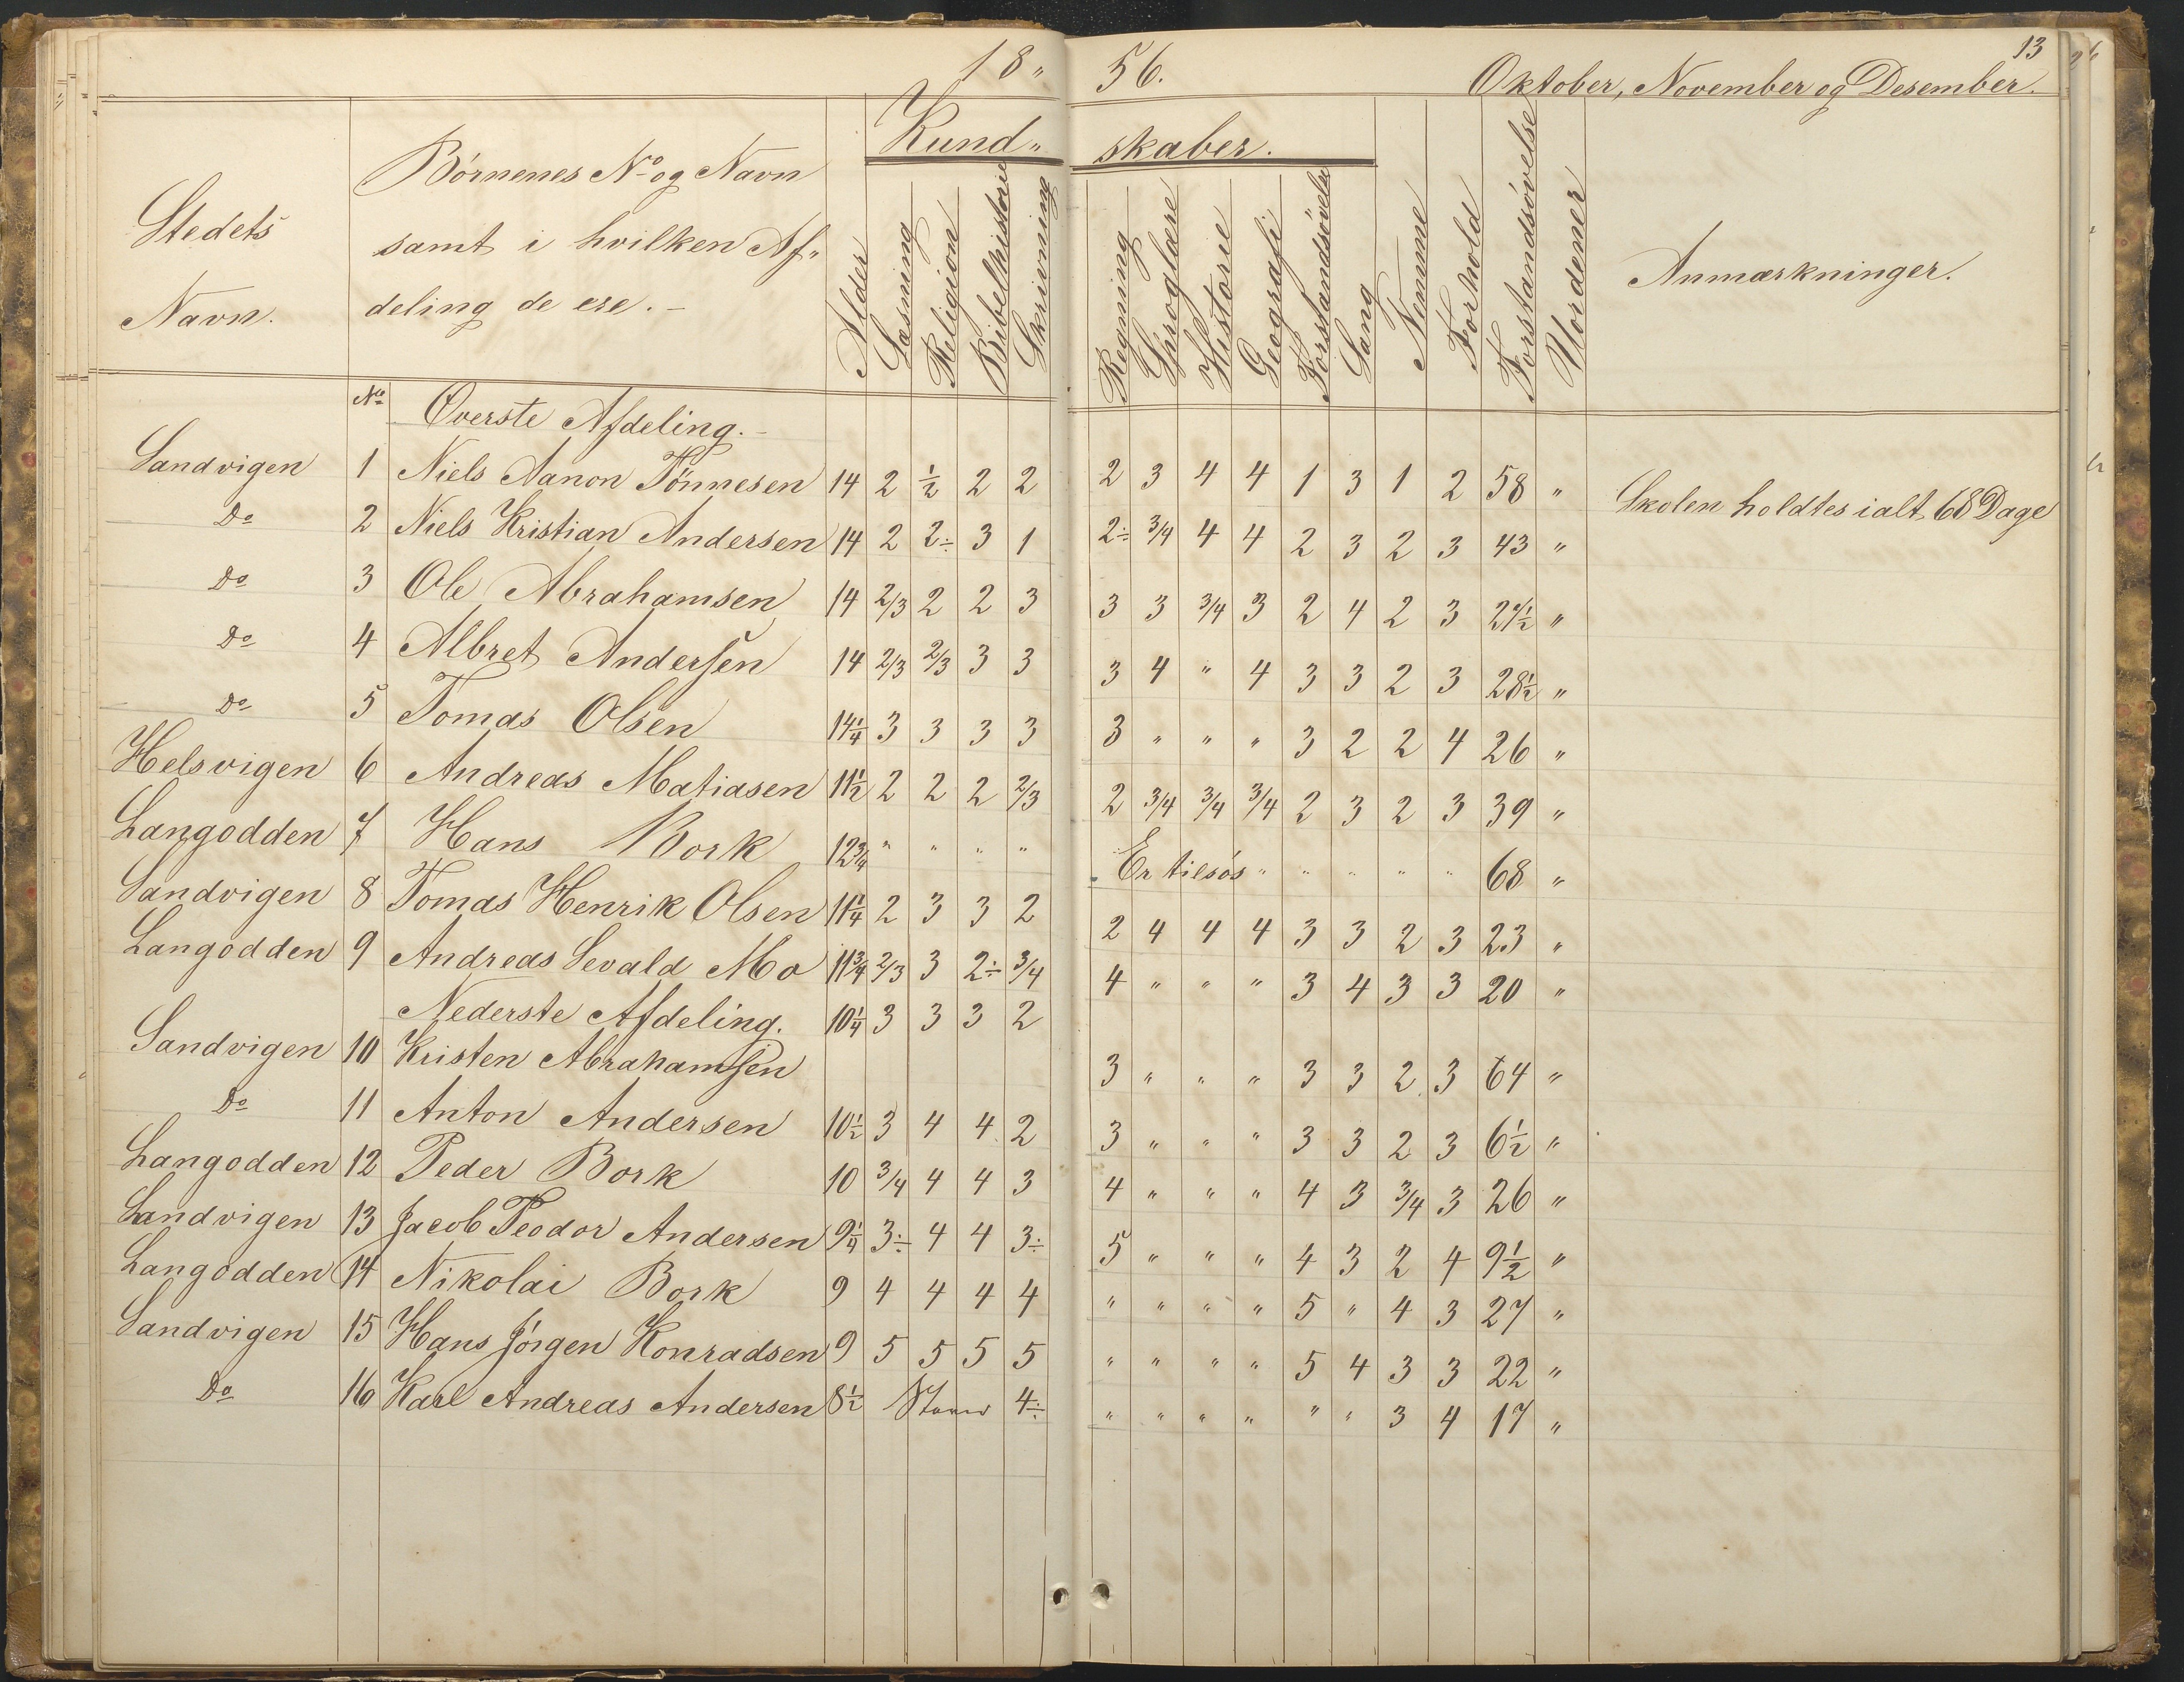 18„ 56. 13
Oktober, November og Desember.
Kund„ skaber.
Stedets Navn.
Börnenes No og Navn
samt i hvilken Af„
deling de ere. –
Alder Læsning Religion Bibelhistorie Skrivning Regning Sproglære Historie Geografi Forstandsövelse Sang Nemme Forhold Forstandsövelse Uordener Anmærkninger.
No Överste Afdeling. –
Sandvigen 1 Niels Aanon Tönnesen 14 2 ½ 2 2 2 3 4 4 1 3 1 2 58 „ Skolen holdtes ialt 68 Dage
Do 2 Niels Kristian Andersen 14 2 2÷ 3 1 2÷ 3/4 4 4 2 3 2 3 43 „
Do 3 Ole Abrahamsen 14 2/3 2 2 3 3 3 3/4 3 2 4 2 3 „
Do 4 Albret Andersen 14 2/3 2/3 3 3 3 4 „ 4 3 3 2 3 28½ „
Do 5 Tomas Olsen 14¼ 3 3 3 3 3 „ „ „ 3 2 2 4 26 „
Helsvigen 6 Andreas Matiasen 11½ 2 2 2 2/3 2 3/4 3/4 3/4 2 3 2 3 39 „
Langodden 7 Hans Bork 12¾ „ „ „ „ Er tilsös „ „ „ „ „ 68 „
Sandvigen 8 Tomas Henrik Olsen 11¼ 2 3 3 2 2 4 4 4 3 3 2 3 23 „
Langodden 9 Andreas Sevald Mo 11¾ 2/3 3 2÷ 3/4 4 „ „ „ 3 4 3 3 20 „
Nederste Afdeling. 10¼ 3 3 3 2
Sandvigen 10 Kristen Abrahamsen 3 „ „ „ 3 3 2 3 64 „
Do 11 Anton Andersen 10½ 3 4 4 2 3 „ „ „ 3 3 2 3 6½ „
Langodden 12 Peder Bork 10 3/4 4 4 3 4 „ „ „ 4 3 3/4 3 26 „
Sandvigen 13 Jacob Teodor Andersen 9¼ 3÷ 4 4 3÷ 5 „ „ „ 4 3 2 4 9½ „
Langodden 14 Nikolai Bork 9 4 4 4 4 „ „ „ „ 5 „ 4 3 27 „
Sandvigen 15 Hans Jörgen Konradsen 9 5 5 5 5 „ „ „ „ 5 4 3 3 22 „
Do 16 Karl Andreas Andersen 8½ 4÷ „ „ „ „ „ „ 3 4 17 „